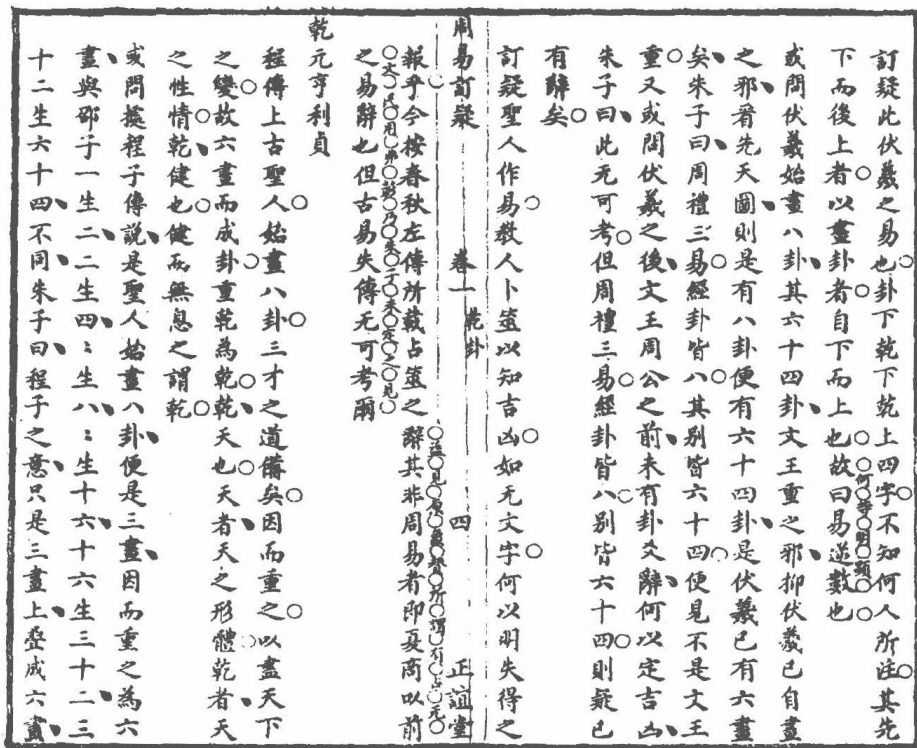 訂疑此伏羲之易也卦下乾下乾上四字不知何人所注其先
下而後上者以畫卦者自下而上也故曰易逆數也
何等明顯
或問伏羲始畫八卦其六十四卦文王重之邪抑伏羲已自畫
之邪看先天圖則是有八卦便有六十四卦是伏羲已有六畫
矣朱子曰周禮三易經卦皆八其别皆六十四便見不是文王
重又或問伏羲之後文王周公之前未有卦爻辭何以定吉凶
朱子曰此无可考但周禮三易經卦皆八别皆六十四則疑已
有辭矣
訂疑聖人作易教人卜筮以知吉凶如无文字何以明失得之
周易訂疑 卷一 乾卦 四 正誼堂
報乎今按春秋左傳所載占筮之辭其非周易者即夏商以前
之易辭也但古易失傳无可考爾
乾元亨利貞
程傳上古聖人始畫八卦三才之道備矣因而重之以盡天下
之變故六畫而成卦重乾為乾乾天也天者天之形體乾者天
之性情乾健也健而無息之謂乾
或問據程子傳說是聖人始畫八卦便是三畫因而重之為六
畫與邵子一生二二生四〻生八〻生十六十六生三十二三
十二生六十四不同朱子曰程子之意只是三畫上叠成六畫